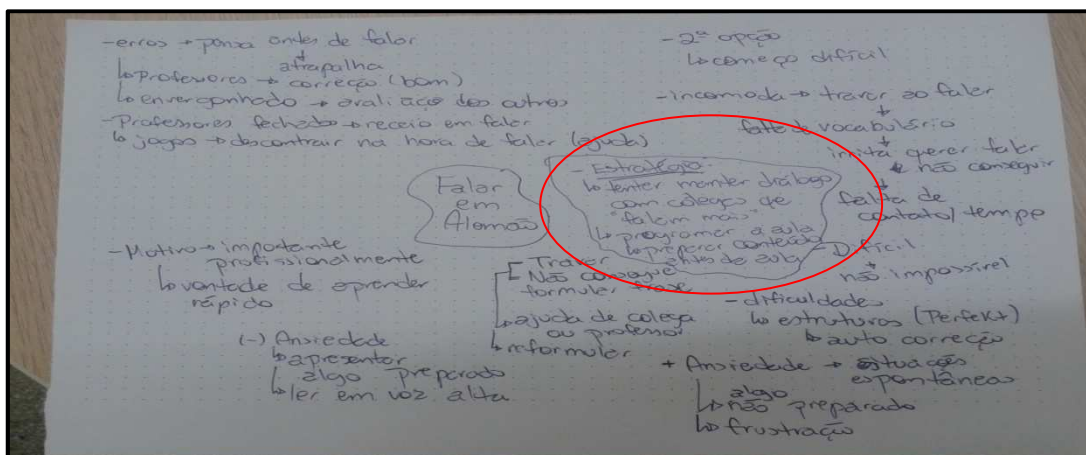 -erros → pensa antes de falar
↓
atrapalha
↳ Professores → correção (bom)
↳ envergonhado → avaliação dos outros
-Professores fechados → receio em falar
↳ jogos → descontrair na hora de falar (ajuda)
-2ª opção
↳ começo difícil
-incomoda → travar ao falar
↓
falta de vocabulário
↓
irrita querer falar
e não conseguir
↓
falta de
contato/tempo
Falar
em
Alemão
- Estratégia:
↳ tentar manter diálogo
com colegas que
"falam mais"
↳ programar a aula
↳ preparar conteúdo
antes da aula
-Difícil
↓
não impossível
-Motivo → importante
profissionalmente
↳ vontade de aprender
rápido
Travar
Não consegue
formular frase
↳ ajuda de colega
ou professor
↳ reformular
-dificuldades
↳ estruturas (Perfekt)
↳ auto correção
(-) Ansiedade
↳ apresentar
algo preparado
↳ ler em voz alta
+ Ansiedade → situações
espontâneas
↳ algo
não preparado
↳ frustração